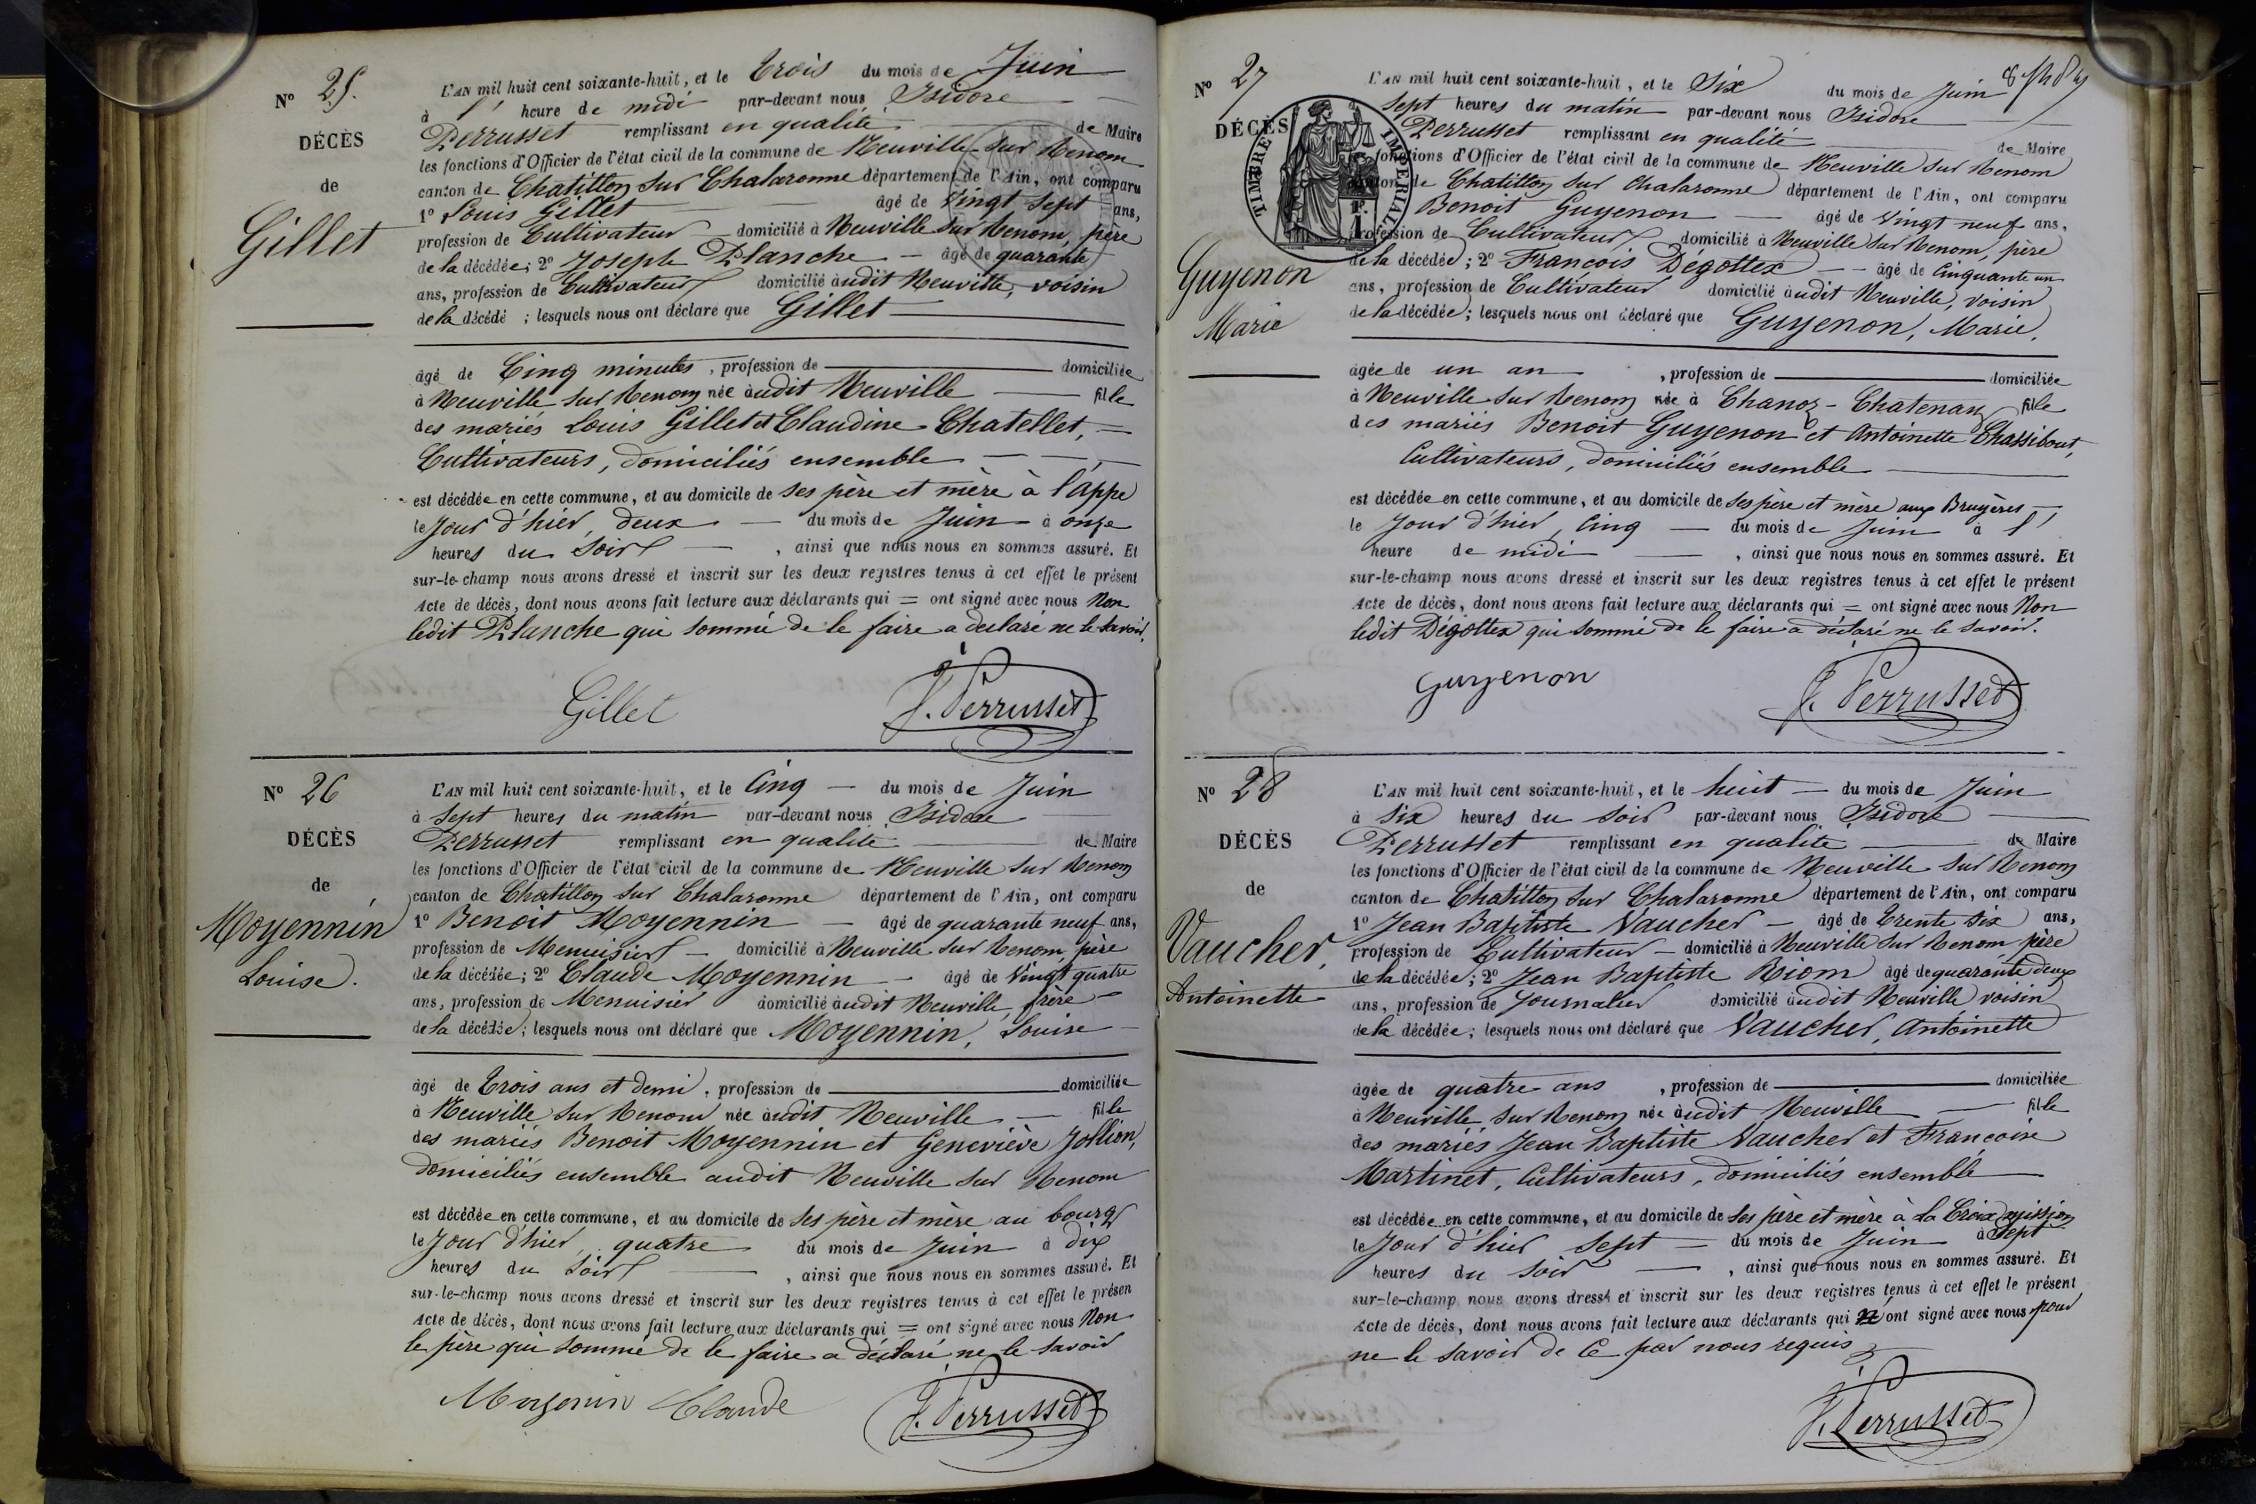 Nº 25.
DÉCÈS
de
Gillet
L'AN mil huit cent soixante-huit, et le Trois du mois de Juin
à l' heure de midi par-devant nous Isidore
Perrusset remplissant en qualité de Maire
les fonctions d'Officier de l'état civil de la commune de Neuville sur Renom
canton de Chatillon sur Chalaronne département de l'Ain, ont comparu
1º Louis Gillet âgé de vingt sept ans,
profession de Cultivateur domicilié à Neuville sur Renom, père
de la décédée; 2º Joseph Planche âgé de quarante
ans, profession de Cultivateur domicilié audit Neuville, voisin
de la décédé ; lesquels nous ont déclaré que Gillet
âgé de Cinq minutes, profession de domiciliée
à Neuville sur Renom née audit Neuville fille
des mariés Louis Gillet et Claudine Chatellet,
Cultivateurs, domiciliés ensemble
est décédée en cette commune, et au domicile de ses père et mère à l'Appe
le Jour d'hier, deux du mois de Juin à onze
heures du Soir, ainsi que nous nous en sommes assuré. Et
sur-le-champ nous avons dressé et inscrit sur les deux registres tenus à cet effet le présent
Acte de décès, dont nous avons fait lecture aux déclarants qui = ont signé avec nous Non
ledit Planche qui sommé de le faire a déclaré ne le savoir.
Gillet J. Perrusset
Nº 26
DÉCÈS
de
Moyennin
Louise.
L'AN mil huit cent soixante-huit, et le Cinq du mois de Juin
à Sept heures du matin par-devant nous Isidore
Perrusset remplissant en qualité de Maire
les fonctions d'Officier de l'état civil de la commune de Neuville sur Renom
canton de Chatillon sur Chalaronne département de l'Ain, ont comparu
1º Benoit Moyennin âgé de quarante neuf ans,
profession de Menuisier domicilié à Neuville sur Renom, père
de la décédée; 2º Claude Moyennin âgé de Vingt quatre
ans, profession de Menuisier domicilié audit Neuville, frère
de la décédée; lesquels nous ont déclaré que Moyennin, Louise
âgé de Trois ans et demi, profession de domiciliée
à Neuville sur Renom née audit Neuville fille
des mariés Benoit Moyennin et Geneviève Jollion,
domiciliés ensemble audit Neuville sur Renom
est décédée en cette commune, et au domicile de ses père et mère au bourg
le Jour d'hier, quatre du mois de Juin à dix
heures du Soir, ainsi que nous nous en sommes assuré. Et
sur-le-champ nous avons dressé et inscrit sur les deux registres tenus à cet effet le présen
Acte de décès, dont nous avons fait lecture aux déclarants qui = ont signé avec nous Non
le père qui sommé de le faire a déclaré ne le savoir
Moyenin Claude J. Perrusset
Nº 27
DÉCÈS
TIMBRE IMPÉRIAL
1 F.
Guyenon
Marie
L'AN mil huit cent soixante-huit, et le Six du mois de Juin
Sept heures du matin par-devant nous Isidore
Perrusset remplissant en qualité de Maire
fonctions d'Officier de l'état civil de la commune de Neuville sur Renom
canton de Chatillon sur Chalaronne département de l'Ain, ont comparu
Benoit Guyenon âgé de Vingt neuf ans,
profession de Cultivateur domicilié à Neuville sur Renom, père
de la décédée; 2º François Dégottex âgé de Cinquante un
ans, profession de Cultivateur domicilié audit Neuville, voisin
de la décédée; lesquels nous ont déclaré que Guyenon, Marie,
agée de un an, profession de domiciliée
à Neuville sur Renom née à Chanoz-Chatenay fille
des mariés Benoit Guyenon et Antoinette Chassibout,
Cultivateurs, domiciliés ensemble
est décédée en cette commune, et au domicile de ses père et mère aux Bruyères
le Jour d'hier, Cinq du mois de Juin à l'
heure de midi, ainsi que nous nous en sommes assuré. Et
sur-le-champ nous avons dressé et inscrit sur les deux registres tenus à cet effet le présent
Acte de décès, dont nous avons fait lecture aux déclarants qui = ont signé avec nous Non
ledit Dégottex qui sommé de le faire a déclaré ne le savoir.
Guyenon J. Perrusset
Nº 28
DÉCÈS
de
Vaucher,
Antoinette
L'AN mil huit cent soixante-huit, et le huit du mois de Juin
à Six heures du Soir par-devant nous Isidore
Perrusset remplissant en qualité de Maire
les fonctions d'Officier de l'état civil de la commune de Neuville sur Renom
canton de Chatillon sur Chalaronne département de l'Ain, ont comparu
1º Jean Baptiste Vaucher âgé de Trente six ans,
profession de Cultivateur domicilié à Neuville sur Renom père
de la décédée; 2º Jean Baptiste Riom âgé de quarante deux
ans, profession de Journalier domicilié audit Neuville voisin
de la décédée; lesquels nous ont déclaré que Vaucher, Antoinette
agée de quatre ans, profession de domiciliée
à Neuville sur Renom née audit Neuville fille
des mariés Jean Baptiste Vaucher et Françoise
Martinet, Cultivateurs, domiciliés ensemble
est décédée en cette commune, et au domicile de ses père et mère à la Croix mission
le Jour d'hier Sept du mois de Juin à Sept
heures du Soir, ainsi que nous nous en sommes assuré. Et
sur-le-champ nous avons dressé et inscrit sur les deux registres tenus à cet effet le présent
Acte de décès, dont nous avons fait lecture aux déclarants qui n'ont signé avec nous pour
ne le savoir de ce par nous requis
J. Perrusset